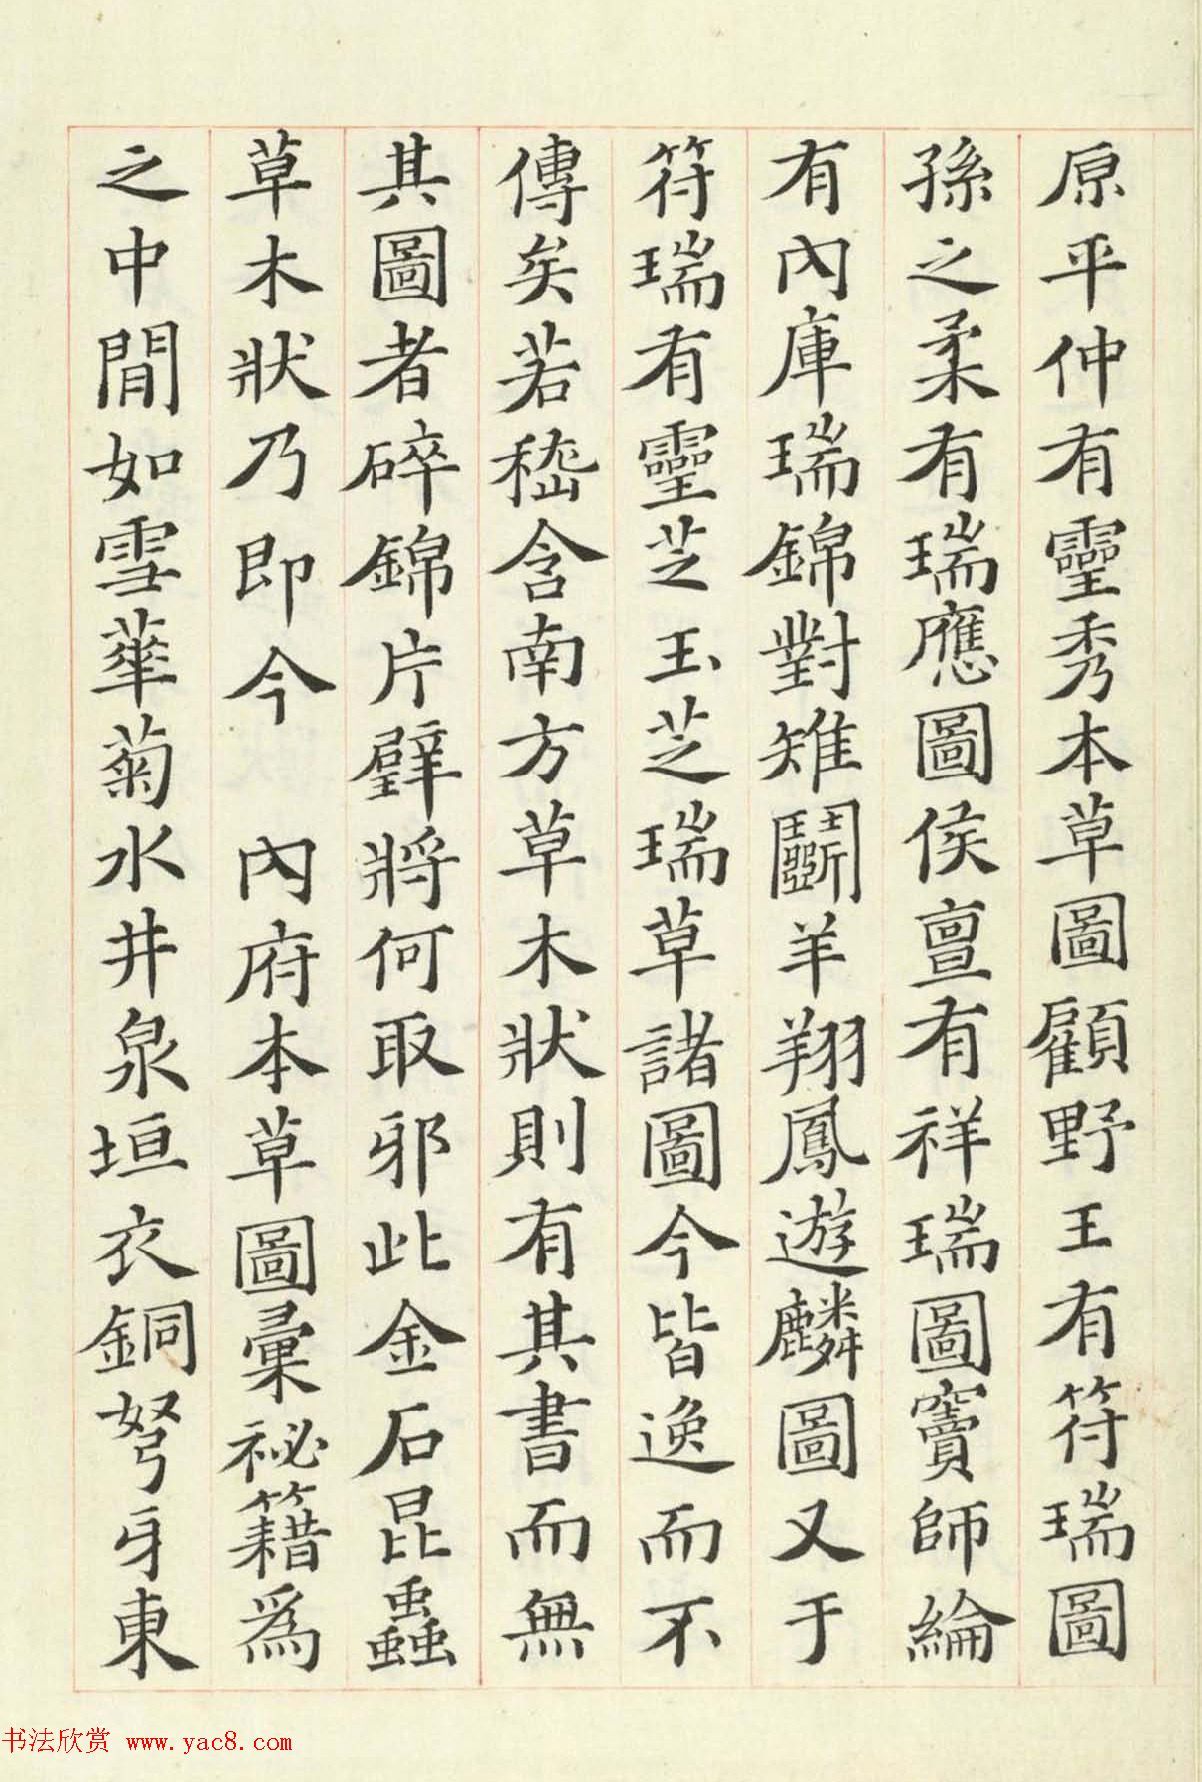 原平仲有靈秀本草圖顧野王有符瑞圖
孫之柔有瑞應圖侯亶有祥瑞圖竇師綸
有內庫瑞錦對雉鬬羊翔鳳遊麟圖又于
符瑞有靈芝玉芝瑞草諸圖今皆逸而不
傳矣若嵇含南方草木狀則有其書而無
其圖者碎錦片璧將何取邪此金石昆蟲
草木狀乃即今 內府本草圖彙秘籍為
之中間如雪華菊水井泉垣衣銅弩牙東
书法欣赏 www.yac8.com